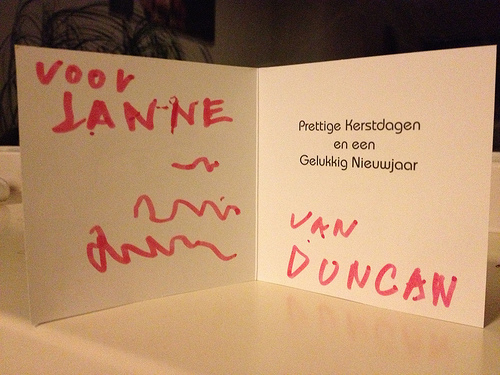 VOOR
IANNE
Prettige Kerstdagen
en een
Gelukkig Nieuwjaar
VAN
DUNCAN